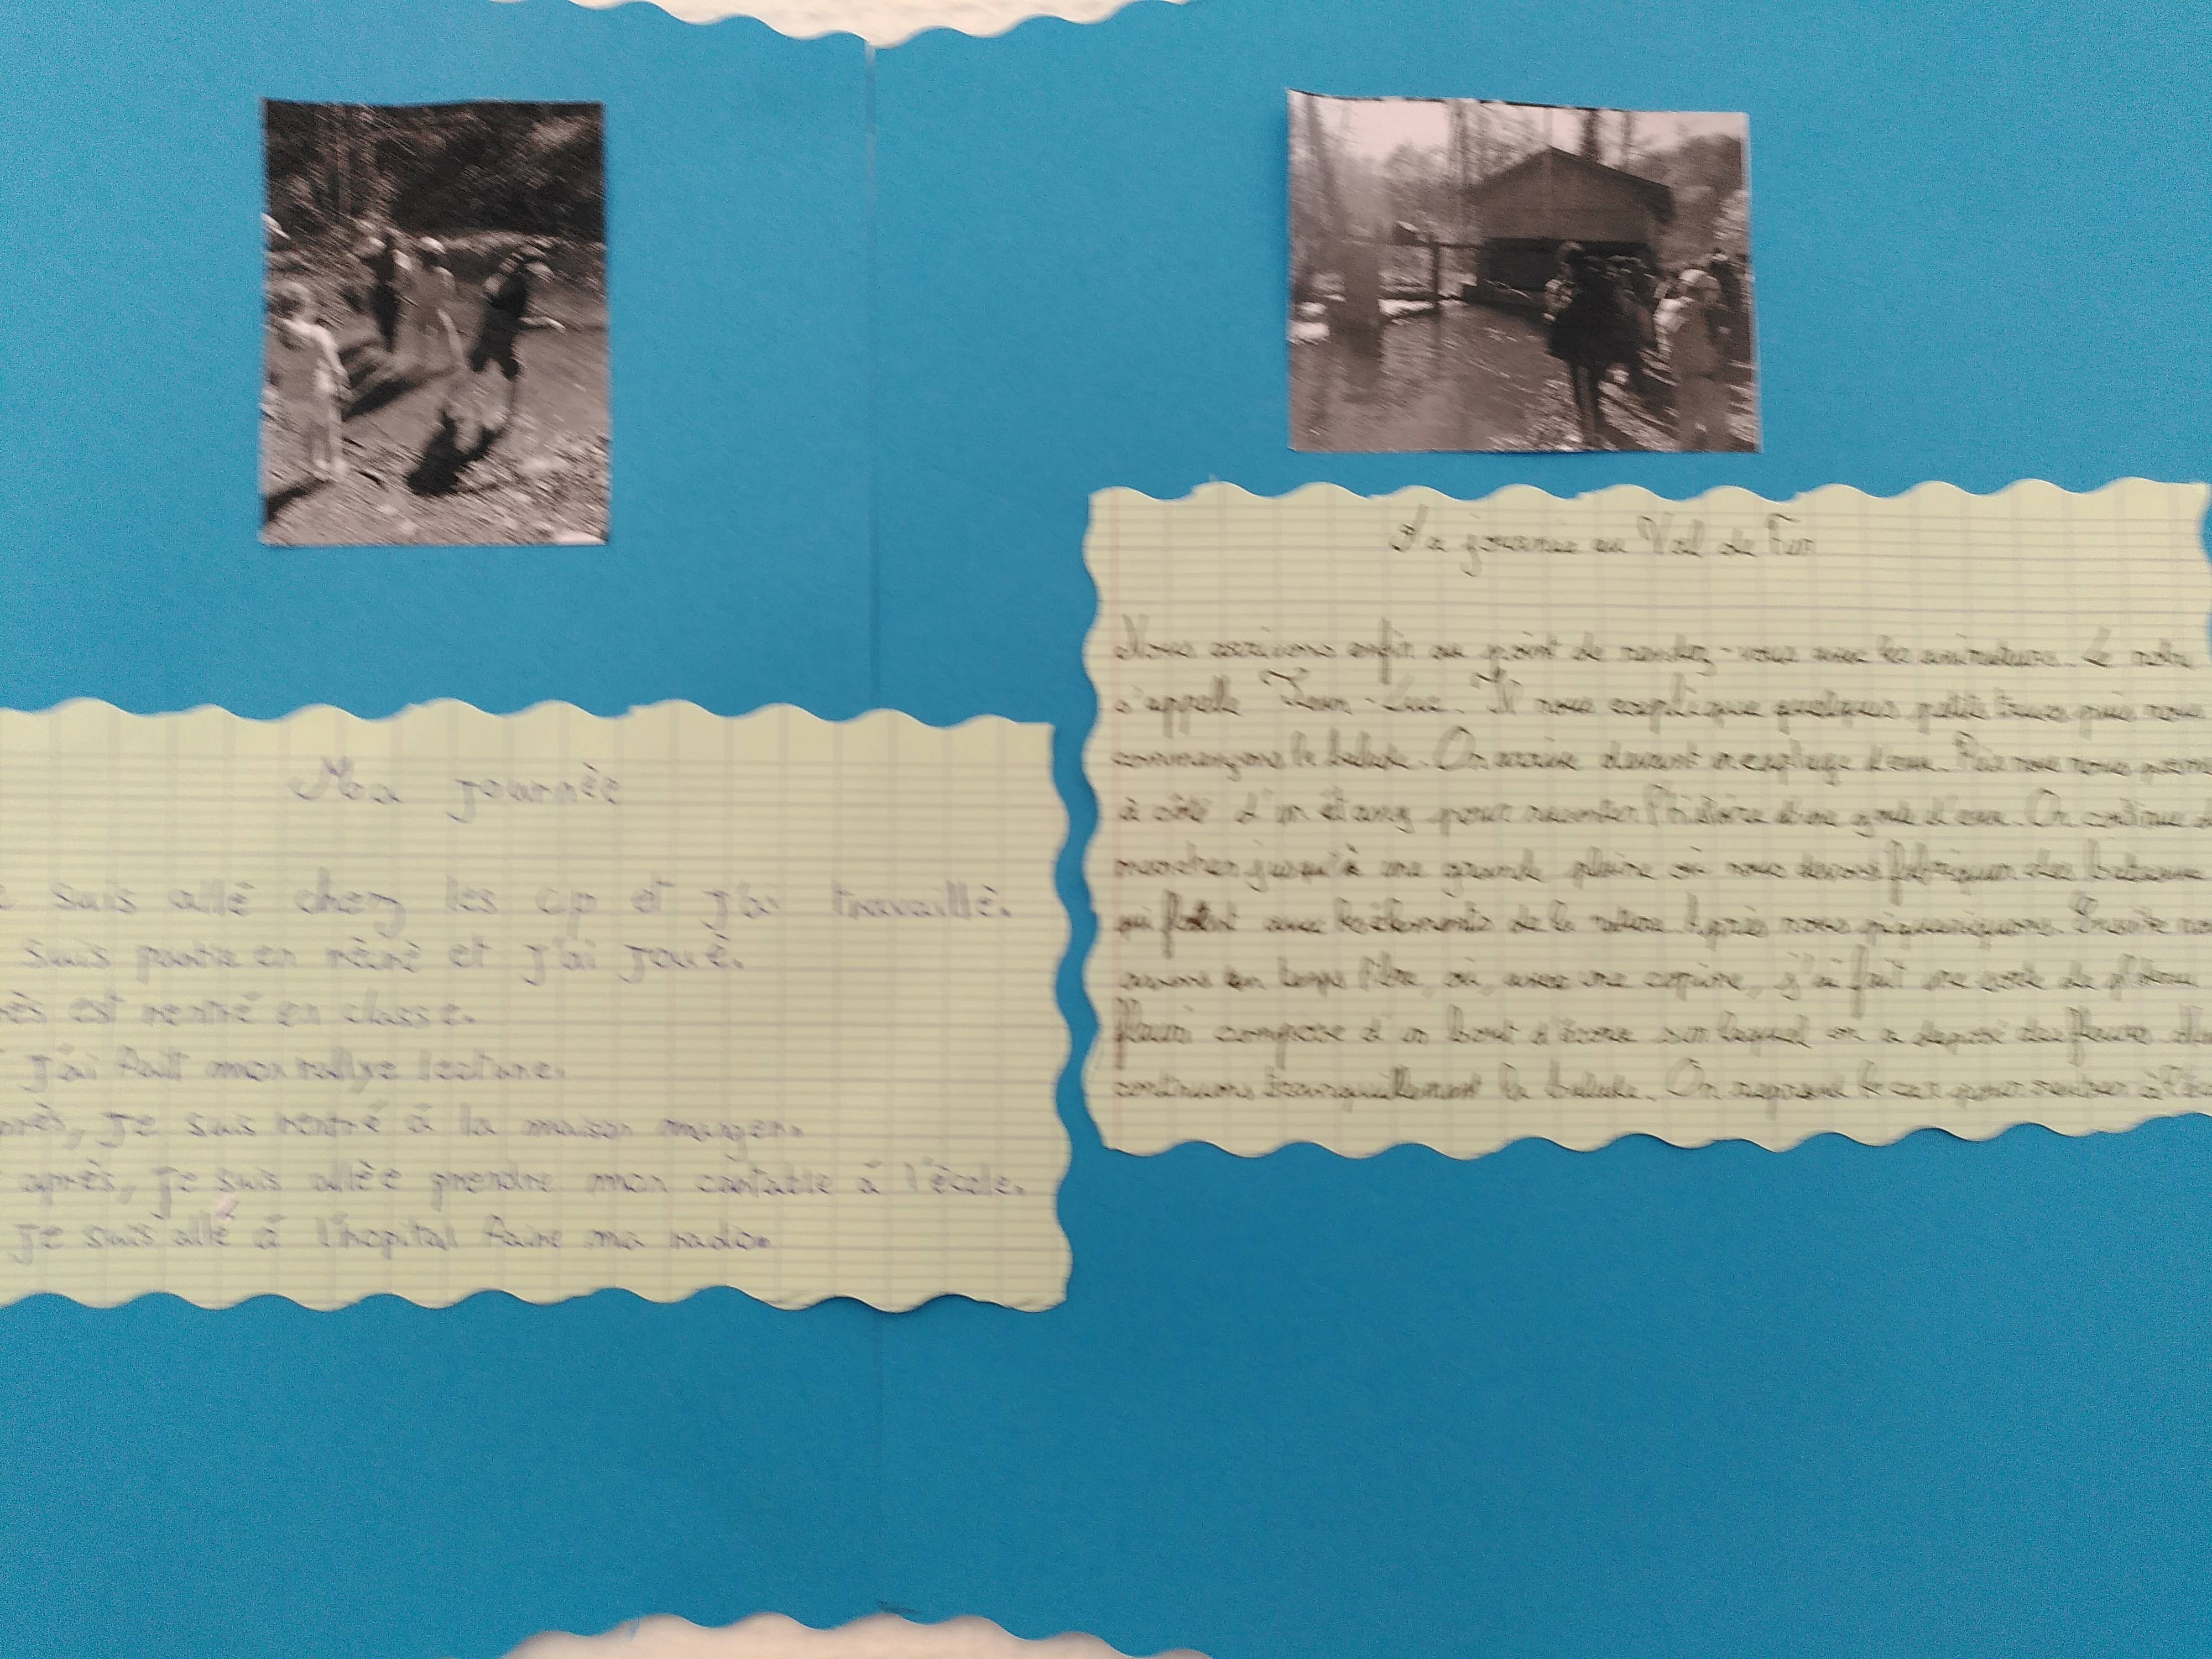 Ma journée
suis allé chez les cp et j'ai travaillé.
suis partie en récré et j'ai joué.
est rentré en classe.
j'ai fait mon rallye lecture.
je suis rentré à la maison manger.
après, je suis allée prendre mon cartable à l'école.
je suis allé à l'hopital faire ma radio
La journée au Val de
Nous arrivons enfin au point de rendez-vous avec les animateurs. Le notre
s'appelle Jean-Luc. Il nous explique quelques petits trucs puis nous
commençons la balade. On arrive devant un captage d'eau. Puis nous nous
à côté d'un étang pour raconter l'histoire d'une d'eau. On continue
marcher jusqu'à une grande plaine où nous devons fabriquer des bateaux
qui flotent avec les éléments de la nature. Après nous piqueniquons. Ensuite
avons un temps libre, où, avec une copine, j'ai fait une sorte de
fleuri compose d'un bout d'écorce sur laquel on a déposé des fleurs.
continuons tranquillement la balade. On reprend le car pour rentrer à